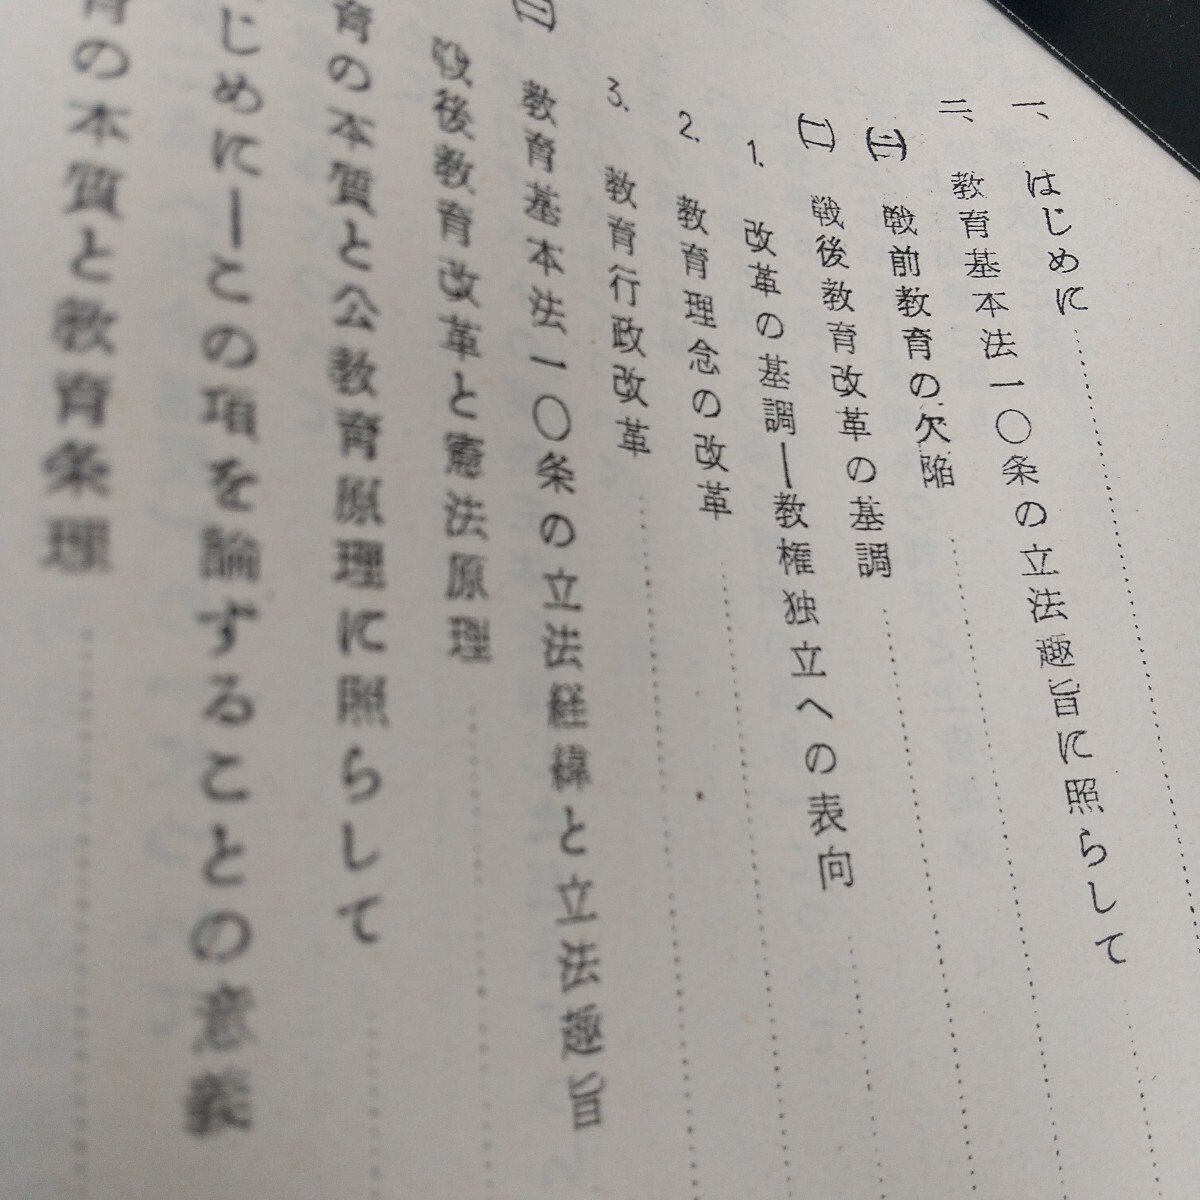 一、はじめに
二、教育基本法一〇条の立法趣旨に照らして
戦前教育の欠陥
戦後教育改革の基調
1. 改革の基調―教権独立への表向
2. 教育理念の改革
3. 教育行政改革
教育基本法一〇条の立法経緯と立法趣旨
戦後教育改革と憲法原理
育の本質と公教育原理に照らして
じめに―この項を論ずることの意義
育の本質と教育条理